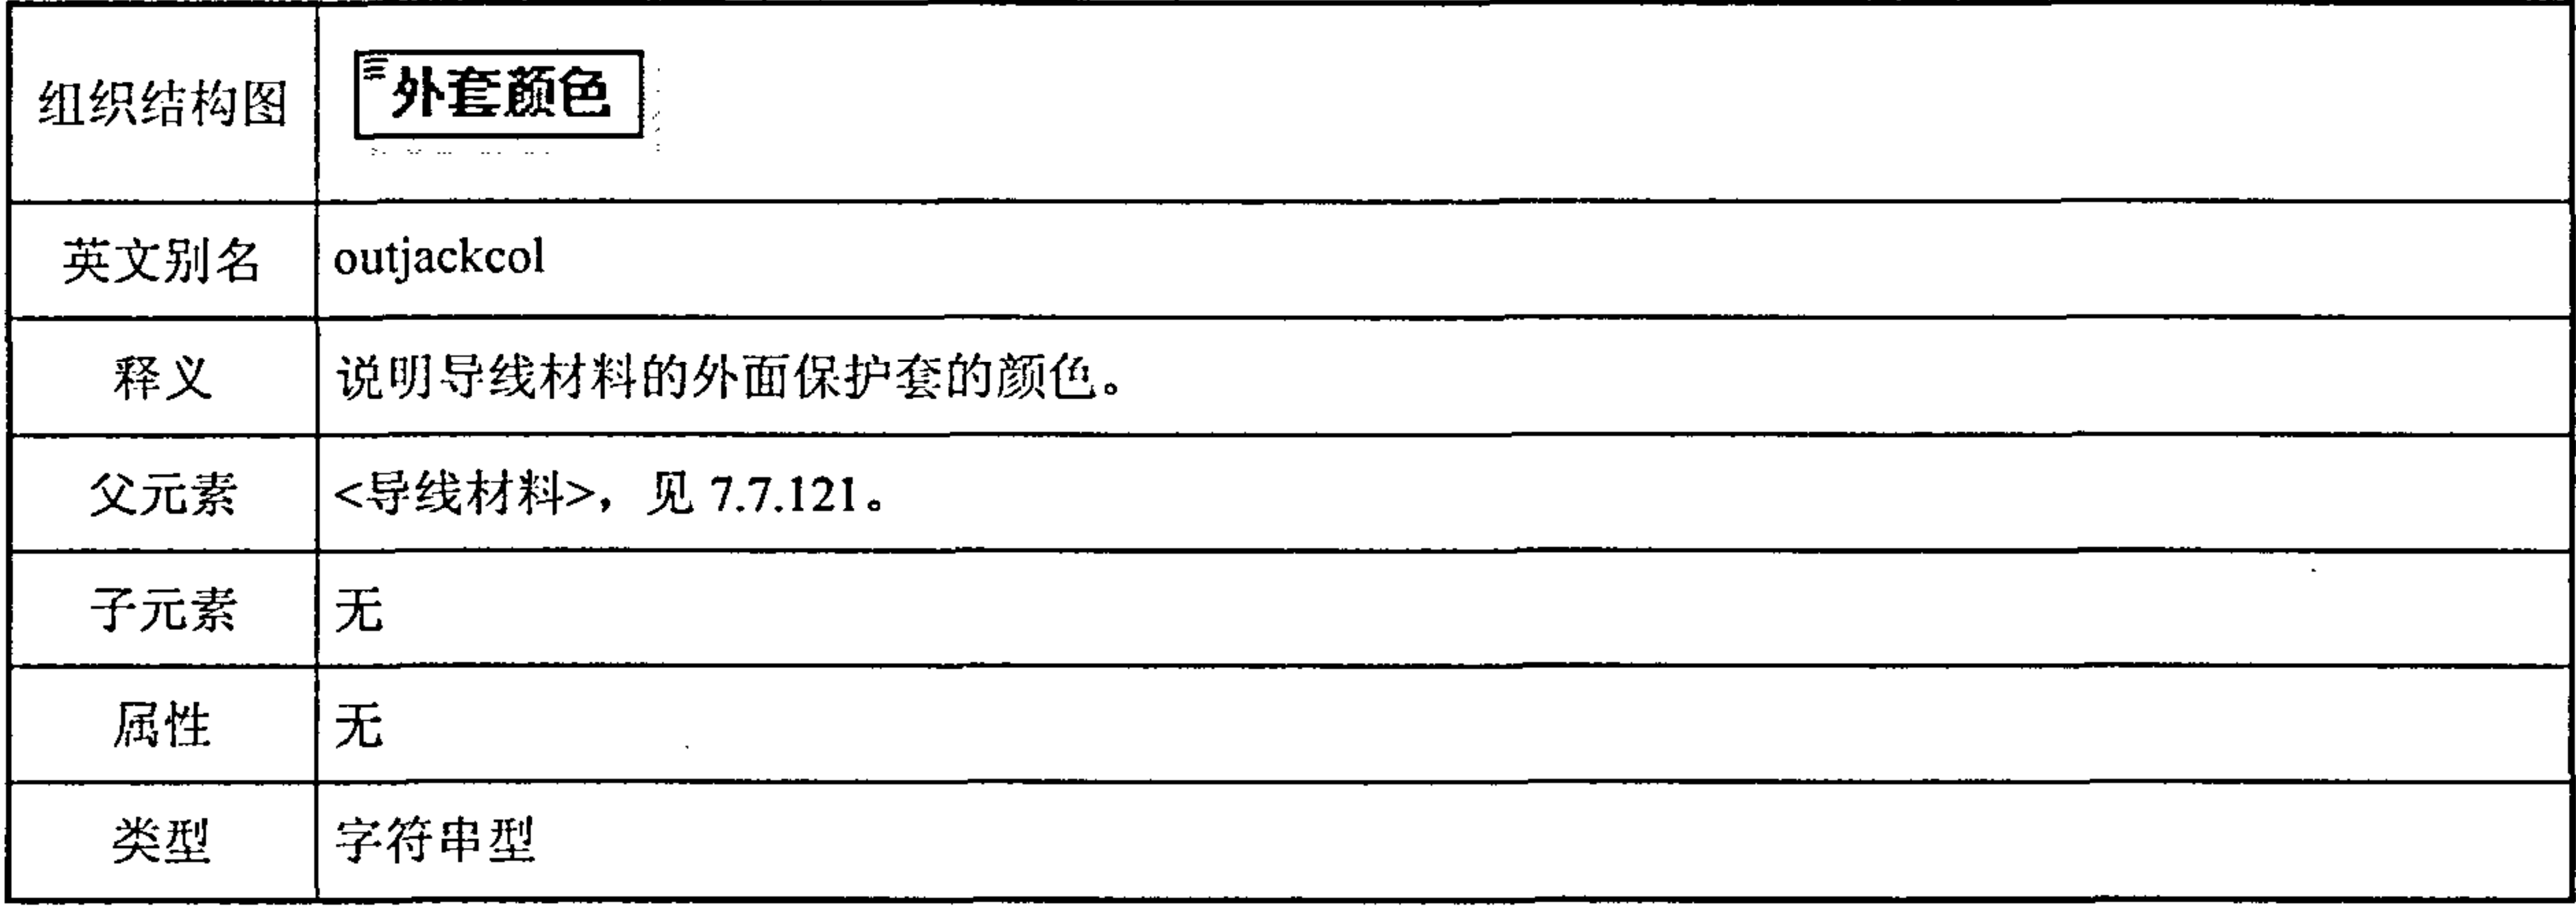 组织结构图 外套颜色
英文别名 outjackcol
释义 说明导线材料的外面保护套的颜色。
父元素 <导线材料>，见 7.7.121。
子元素 无
属性 无
类型 字符串型